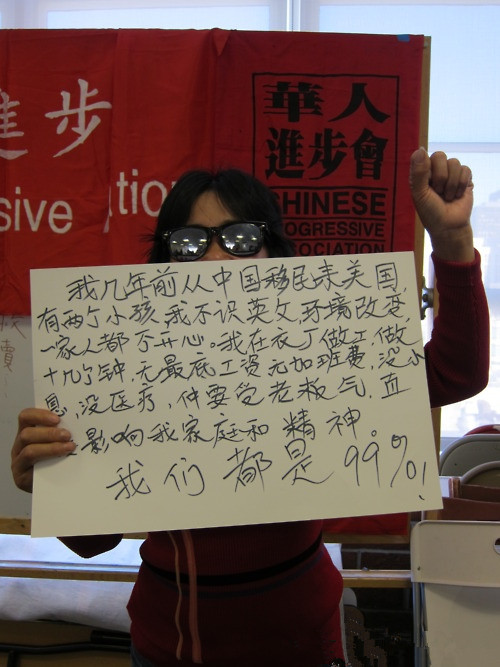 進步
sive
ation
華人
進步會
CHINESE
ROGRESSIVE
SOCIATION
我几年前从中国移民来美国,
有两个小孩,我不识英文,环境改变,
一家人都不开心。我在衣厂做工,做
十几个钟,无最底工资无加班费,没小
息,没医疗,仲要受老板气.直
影响我家庭和精神。
我们都是99%!